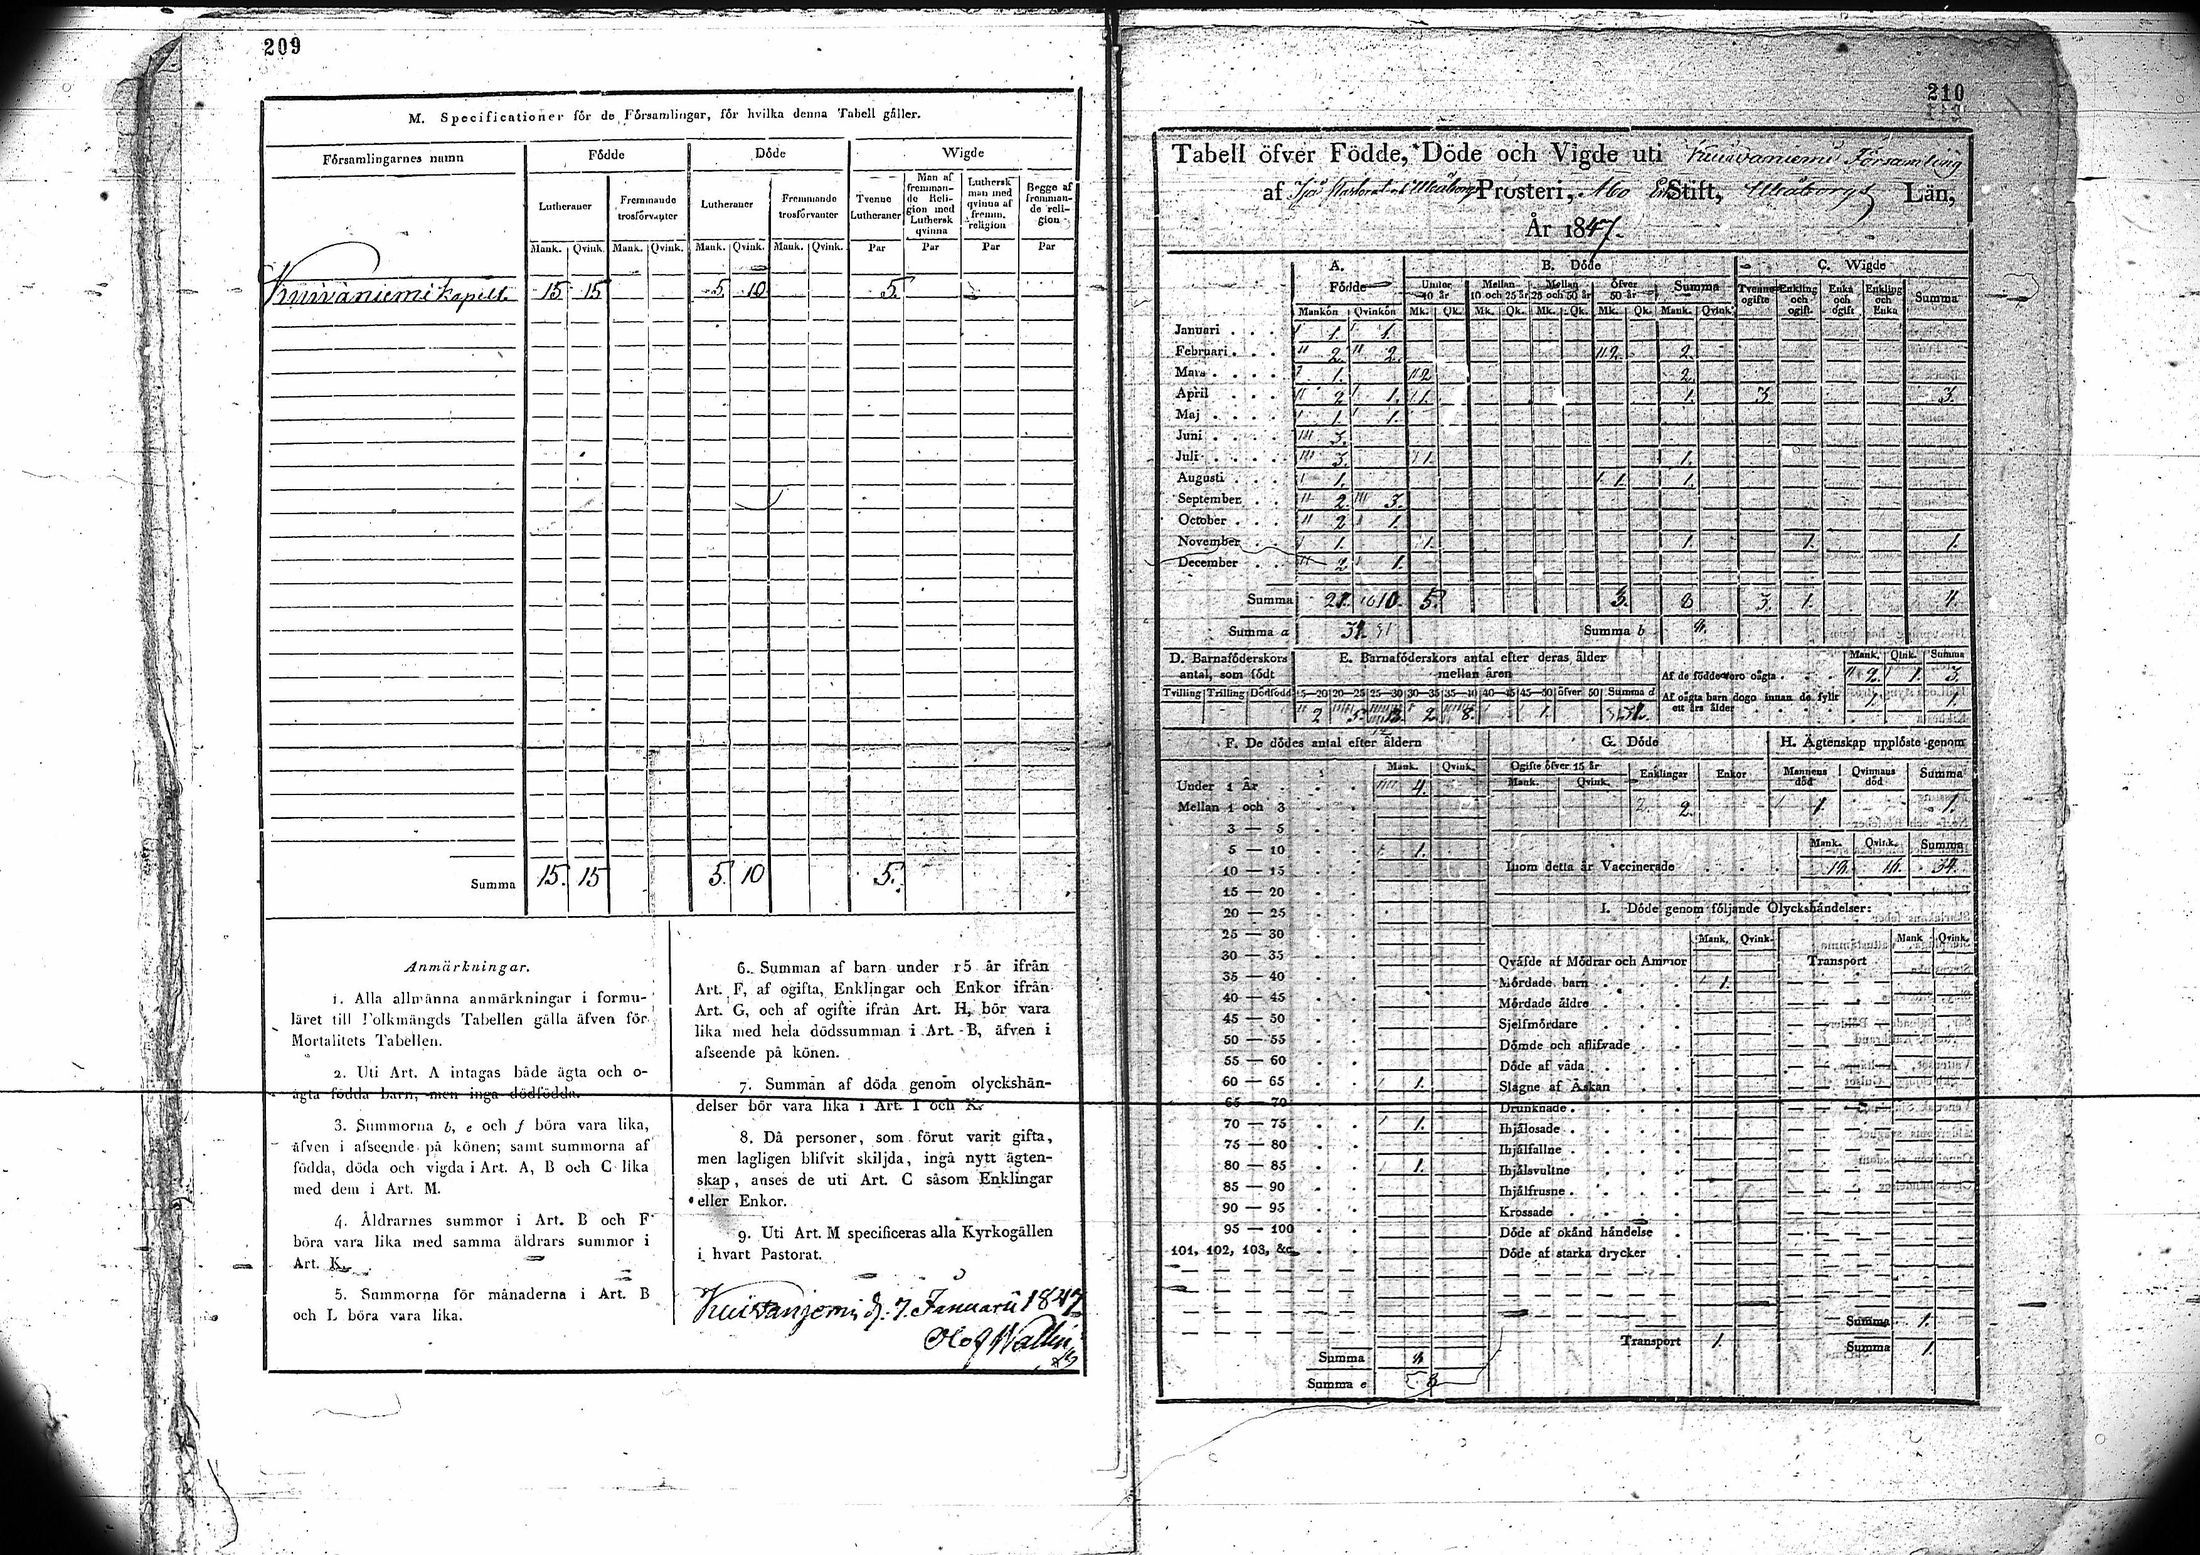 209
M. Specificationer för de Församlingar, för hvilka denna Tabell gäller.
Församlingarnes namn Födde Döde Wigde
Lutheraner Fremmande trosförvanter Lutheraner Fremmande trosförvanter Tvenne Lutheraner Man af fremmande Religion med Luthersk qvinna Luthersk man med qvinna af fremm. religion Begge af fremmande religion
Mank. Qvink. Mank. Qvink. Mank. Qvink. Mank. Qvink. Par Par Par Par
Kuivaniemi kapell 15 15 5 10 5.
Summa 15. 15 5. 10 5.
Anmärkningar.
1. Alla allmänna anmärkningar i formu-
läret till Folkmängds Tabellen gälla äfven för
Mortalitets Tabellen.
2. Uti Art. A intagas både ägta och o-
ägta födda barn, men inga dödfödda.
3. Summorna b, e och f böra vara lika,
äfven i afseende på könen; samt summorna af
födda, döda och vigda i Art. A, B och C lika
med dem i Art. M.
4. Åldrarnes summor i Art. B och F
böra vara lika med samma åldrars summor i
Art. K.
5. Summorna för månaderna i Art. B
och L böra vara lika.
6. Summan af barn under 15 år ifrån
Art. F, af ogifta, Enklingar och Enkor ifrån
Art. G, och af ogifte ifrån Art. H, bör vara
lika med hela dödssumman i Art. B, äfven i
afseende på könen.
7. Summan af döda genom olyckshän-
delser bör vara lika i Art. I och K.
8. Då personer, som förut varit gifta,
men lagligen blifvit skiljda, ingå nytt ägten-
skap, anses de uti Art. C såsom Enklingar
eller Enkor.
9. Uti Art. M specificeras alla Kyrkogällen
i hvart Pastorat.
Kuivanjemi d. 7. Januarii 1847
Olof Wallin
210
Tabell öfver Födde, Döde och Vigde uti Kuivaniemi Församling
af Ijo Pastorat Uleåborgs Prosteri, Åbo Stift, Uleåborgs Län,
År 1847.
A. Födde B. Döde C. Wigde
Under 10 år Mellan 10 och 25 år Mellan 25 och 50 år Öfver 50 år Summa Tvenne ogifte Enkling och ogift Enka och ogift Enkling och Enka Summa
Mankön Qvinkön Mk. Qk. Mk. Qk. Mk. Qk. Mk. Qk. Mank. Qvink.
Januari 1. 1.
Februari 2. 2. 2. 2.
Mars 1. 2 2.
April 2 1. 1. 1. 3. 3.
Maj 1. 1.
Juni 3.
Juli 3. 1. 1.
Augusti 1. 1. 1.
September 2. 3.
October 2 1.
November 1. 1. 1. 1. 1.
December 2. 1.
Summa 21. 10. 5. 3. 8 3. 1. 4.
Summa a 31. 31 Summa b 8.
D. Barnaföderskors antal, som födt
E. Barnaföderskors antal efter deras ålder mellan åren
Mank. Qink. Summa
Tvilling Trilling Dödfödd 15—20 20—25 25—30 30—35 35—40 40—45 45—50 öfver 50 Summa d
2 5. 2. 8. 1. 31.
Af de födde voro oägta 2. 1. 3.
Af oägta barn dogo innan de fyllt ett års ålder 1. 1.
F. De dödes antal efter åldern
Mank. Qvink.
Under 1 År 4.
Mellan 1 och 3
3 — 5
5 — 10 1.
10 — 15
15 — 20
20 — 25
25 — 30
30 — 35
35 — 40
40 — 45
45 — 50
50 — 55
55 — 60
60 — 65 1.
65 — 70
70 — 75 1.
75 — 80
80 — 85 1.
85 — 90
90 — 95
95 — 100
101, 102, 103, &c.
Summa 8
Summa e 8
G. Döde
Ogifte öfver 15 år Enklingar Enkor
Mank. Qvink.
2.
H. Ägtenskap upplöste genom
Mannens död Qvinnans död Summa
1. 1.
Mank. Qvink. Summa
Inom detta år Vaccinerade 34.
I. Döde genom följande Olyckshändelser:
Mank. Qvink. Mank Qvink.
Qväfde af Mödrar och Ammor Transport
Mördade barn 1.
Mördade äldre
Sjelfmördare
Dömde och aflifvade
Döde af våda
Slagne af Åskan
Drunknade
Ihjälosade
Ihjälfallne
Ihjälsvultne
Ihjälfrusne
Krossade
Döde af okänd händelse
Döde af starka drycker
Summa 1.
Transport 1. Summa 1.